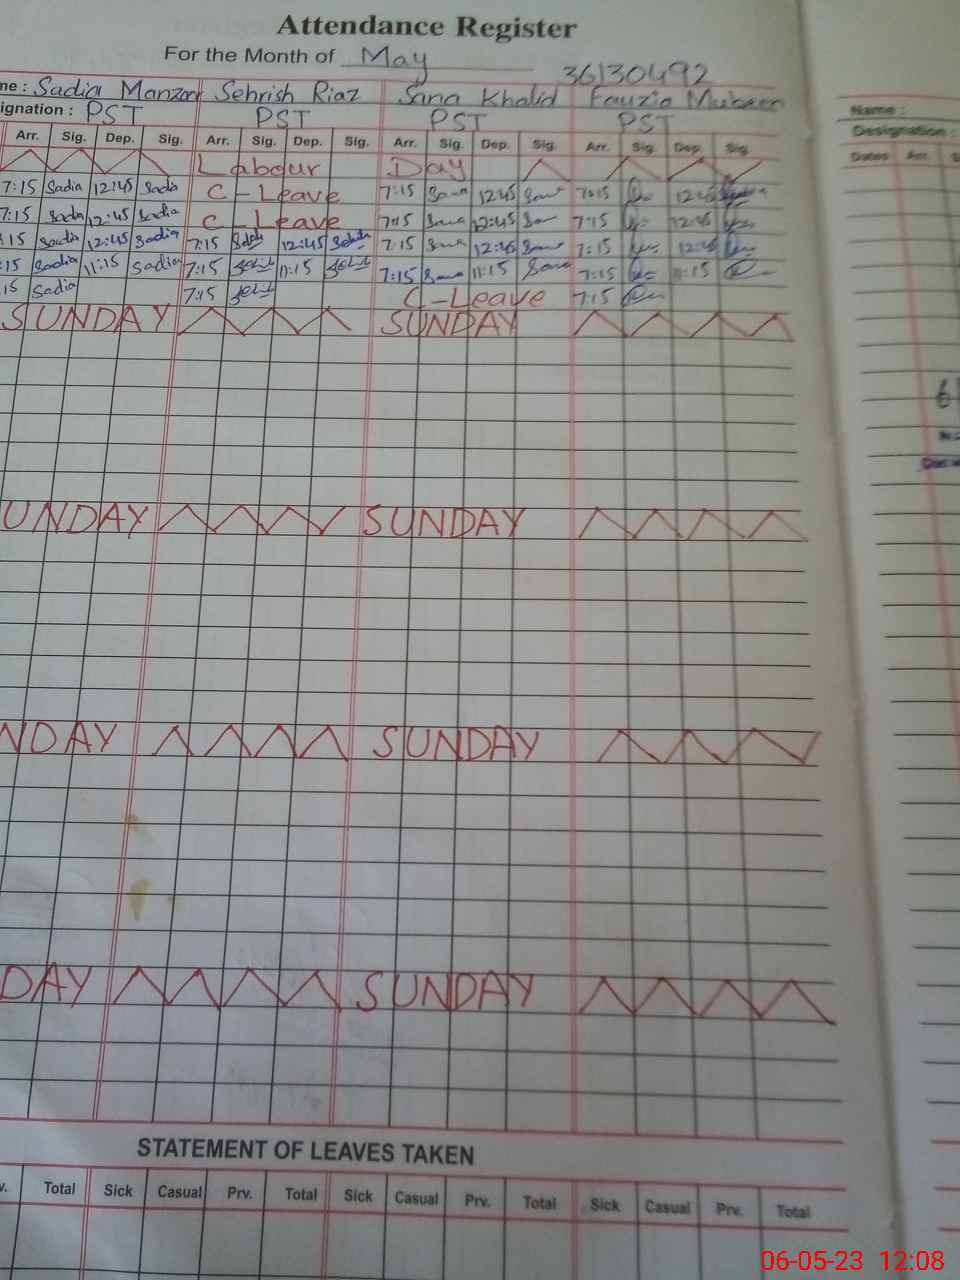 Attendance Register
For the Month of May
36130492
me : Sadia Manzoor Sehrish Riaz Sana Khalid Fauzia Mubeen
Name :
signation : PST PST PST PST
Designation :
Arr. Sig. Dep. Sig. Arr. Sig. Dep. Sig. Arr. Sig. Dep. Sig. Arr. Sig. Dep. Sig.
Dates Arr. S
Labour Day
7:15 Sadia 12:45 Sadia C - Leave 7:15 Sana 12:45 Sana 7:15 12:45
7:15 Sadia 12:45 Sadia C - Leave 7:15 Sana 12:45 Sana 7:15 12:45
:15 Sadia 12:45 Sadia 7:15 12:45 7:15 Sana 12:45 Sana 7:15 12:45
:15 Sadia 11:15 Sadia 7:15 11:15 7:15 Sana 11:15 Sana 7:15 11:15
15 Sadia 7:15 C-Leave 7:15
SUNDAY SUNDAY
6
UNDAY SUNDAY
NDAY SUNDAY
DAY SUNDAY
STATEMENT OF LEAVES TAKEN
v. Total Sick Casual Prv. Total Sick Casual Prv. Total Sick Casual Prv. Total
06-05-23 12:08